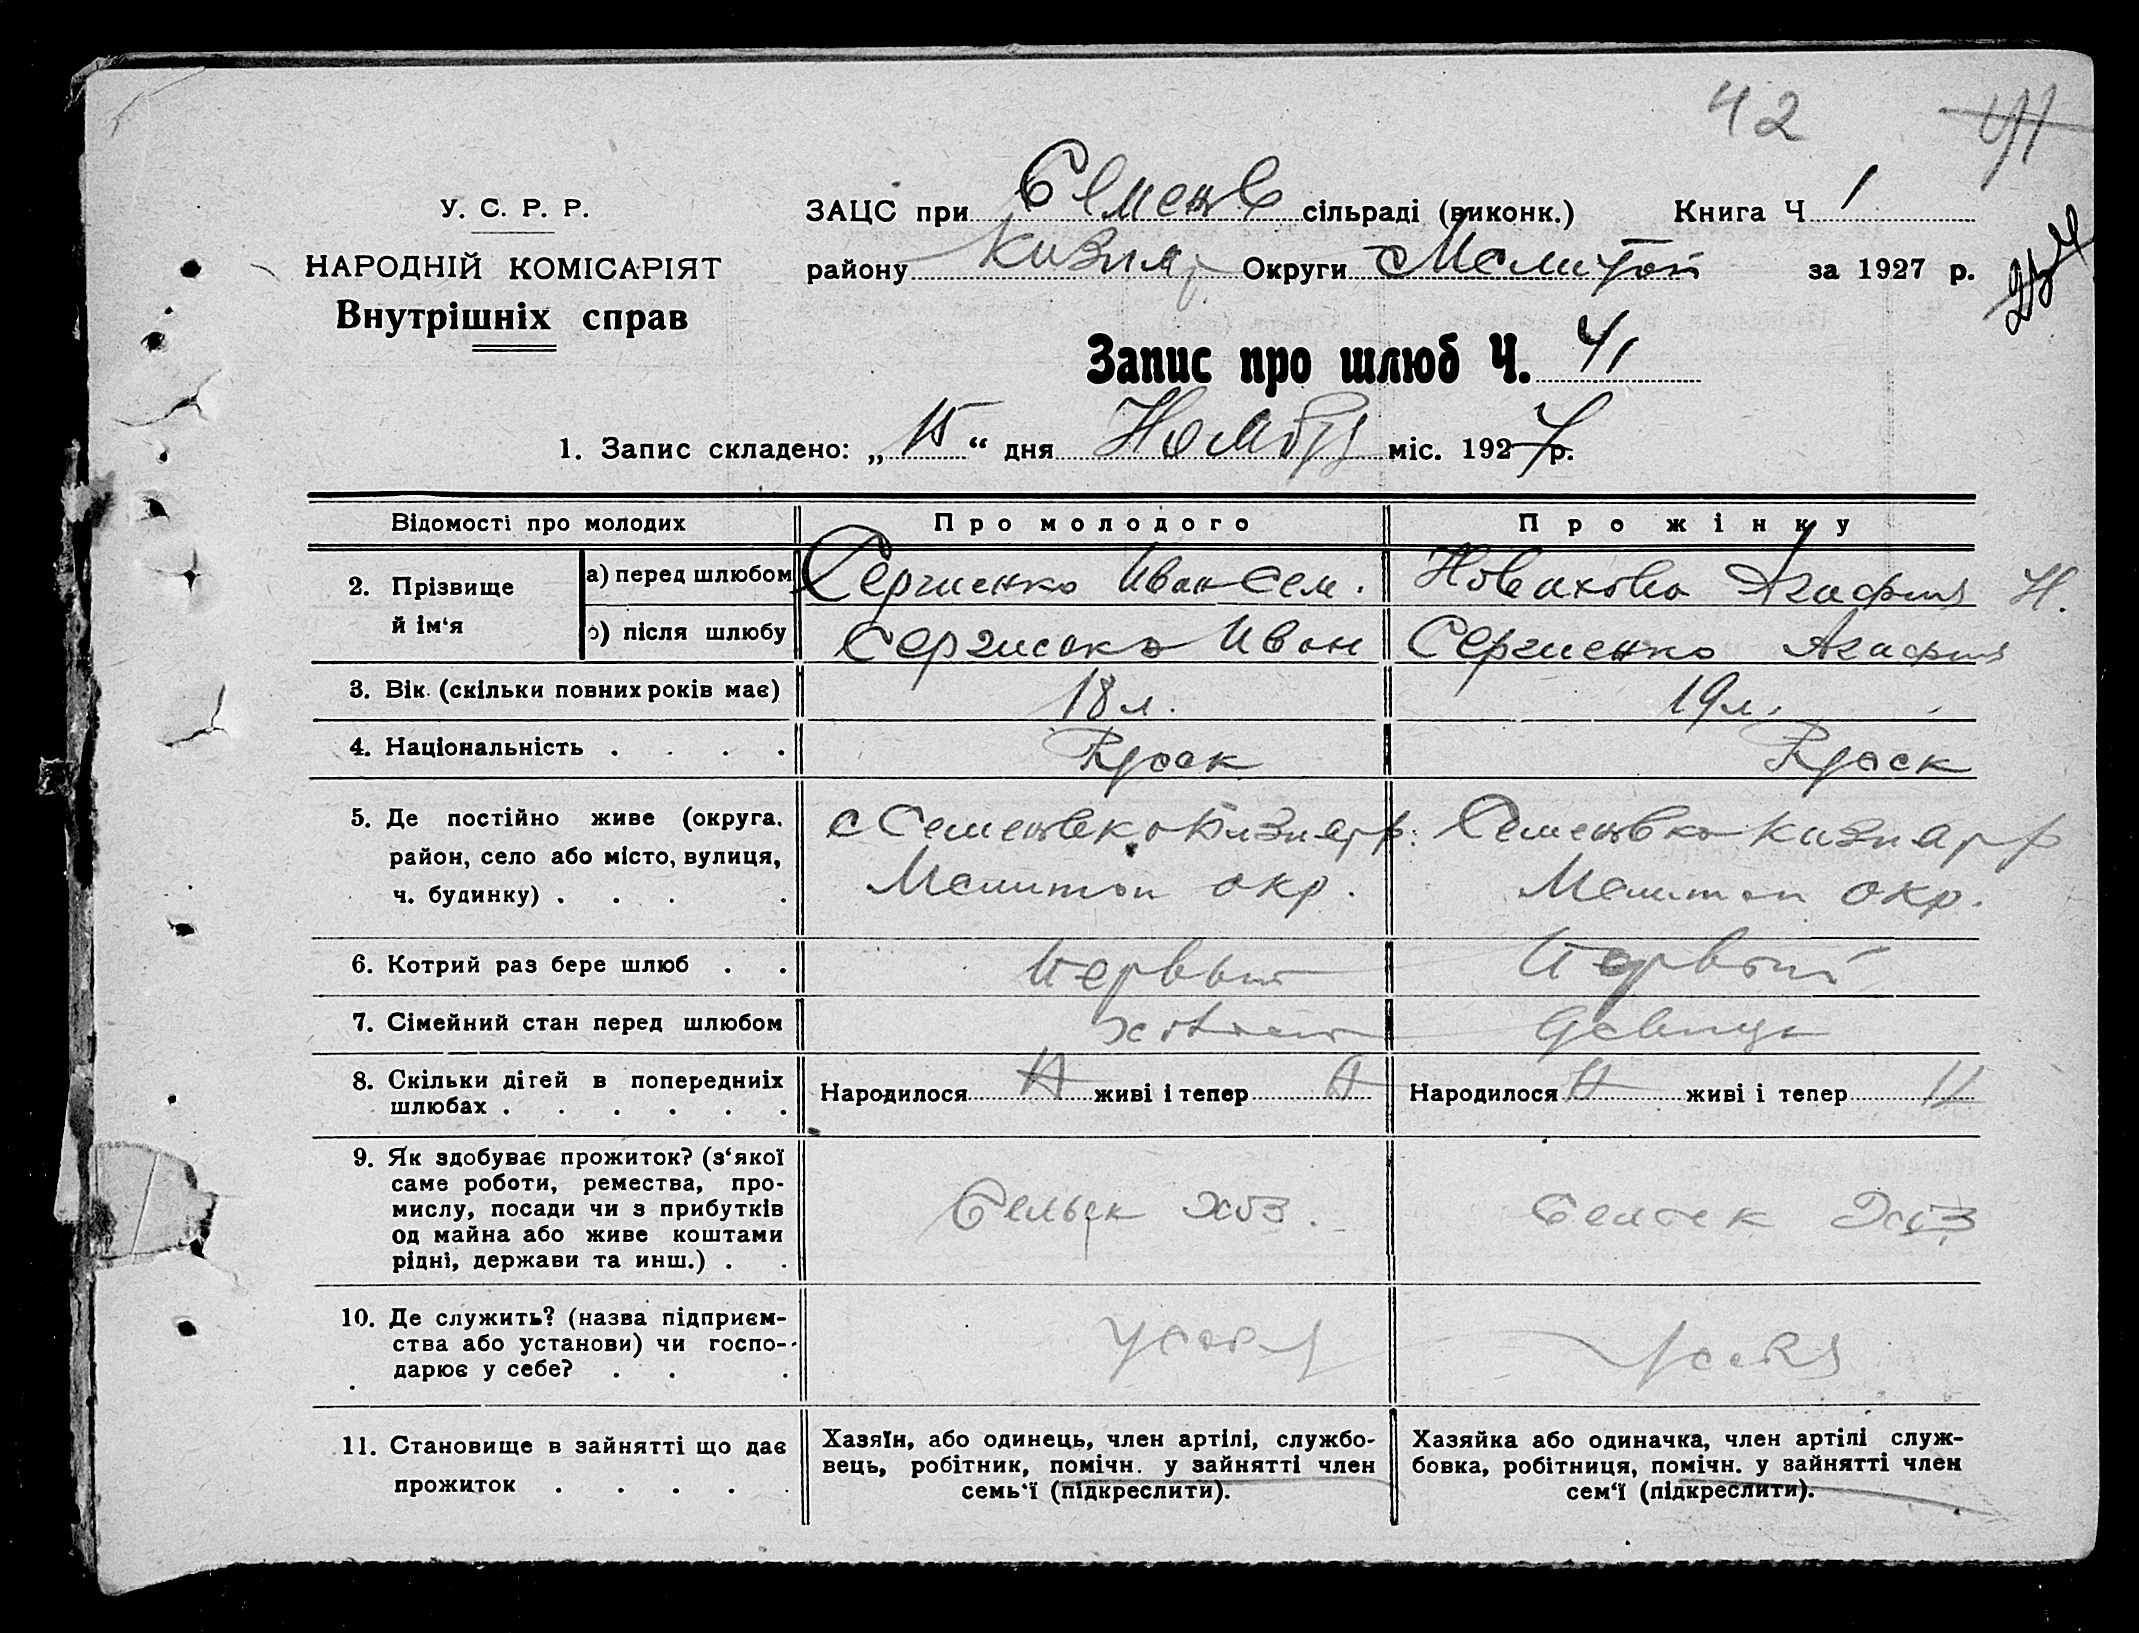 42 41
У. С. Р. Р.
НАРОДНІЙ КОМІСАРІЯТ
Внутрішніх справ
ЗАЦС при Семенов сільраді (виконк.) Книга Ч 1
району Кизияр Округи Мелитоп за 1927 р.
Запис про шлюб Ч. 41
1. Запис складено: „ 15 “ дня Ноября міс. 1927 р.
Відомості про молодих Про молодого Про жінку
2. Прізвище й ім‘я
а) перед шлюбом Сергиенко Иван Сем. Новакова Агафия Н.
б) після шлюбу Сергиенко Иван Сергиенко Агафия
3. Вік (скільки повних років має) 18 л. 19 л.
4. Національність . . . .
5. Де постійно живе (округа, с Семеновка Кизияр р. Семеновка Кизияр р
район, село або місто, вулиця, Мелитоп окр. Мелитоп окр.
ч. будинку) . . . .
6. Котрий раз бере шлюб . . Первый Первый
7. Сімейний стан перед шлюбом холост девица
8. Скільки дітей в попередниіх Народилося Н живі і тепер Н Народилося Н живі і тепер Н
шлюбах . . . . . .
9. Як здобуває прожиток? (з‘якої
саме роботи, ремества, про-
мислу, посади чи з прибутків Сельск хоз. Сельск хоз
од майна або живе коштами
рідні, держави та инш.) . .
10. Де служить? (назва підприєм-
ства або установи) чи госпо-
дарює у себе? . . .
11. Становище в зайнятті що дає
прожиток . . . . .
Хазяїн, або одинець, член артілі, службо-
вець, робітник, помічн. у зайнятті член
семь‘ї (підкреслити).
Хазяйка або одиначка, член артілі служ-
бовка, робітниця, помічн. у зайнятті член
сем‘ї (підкреслити).